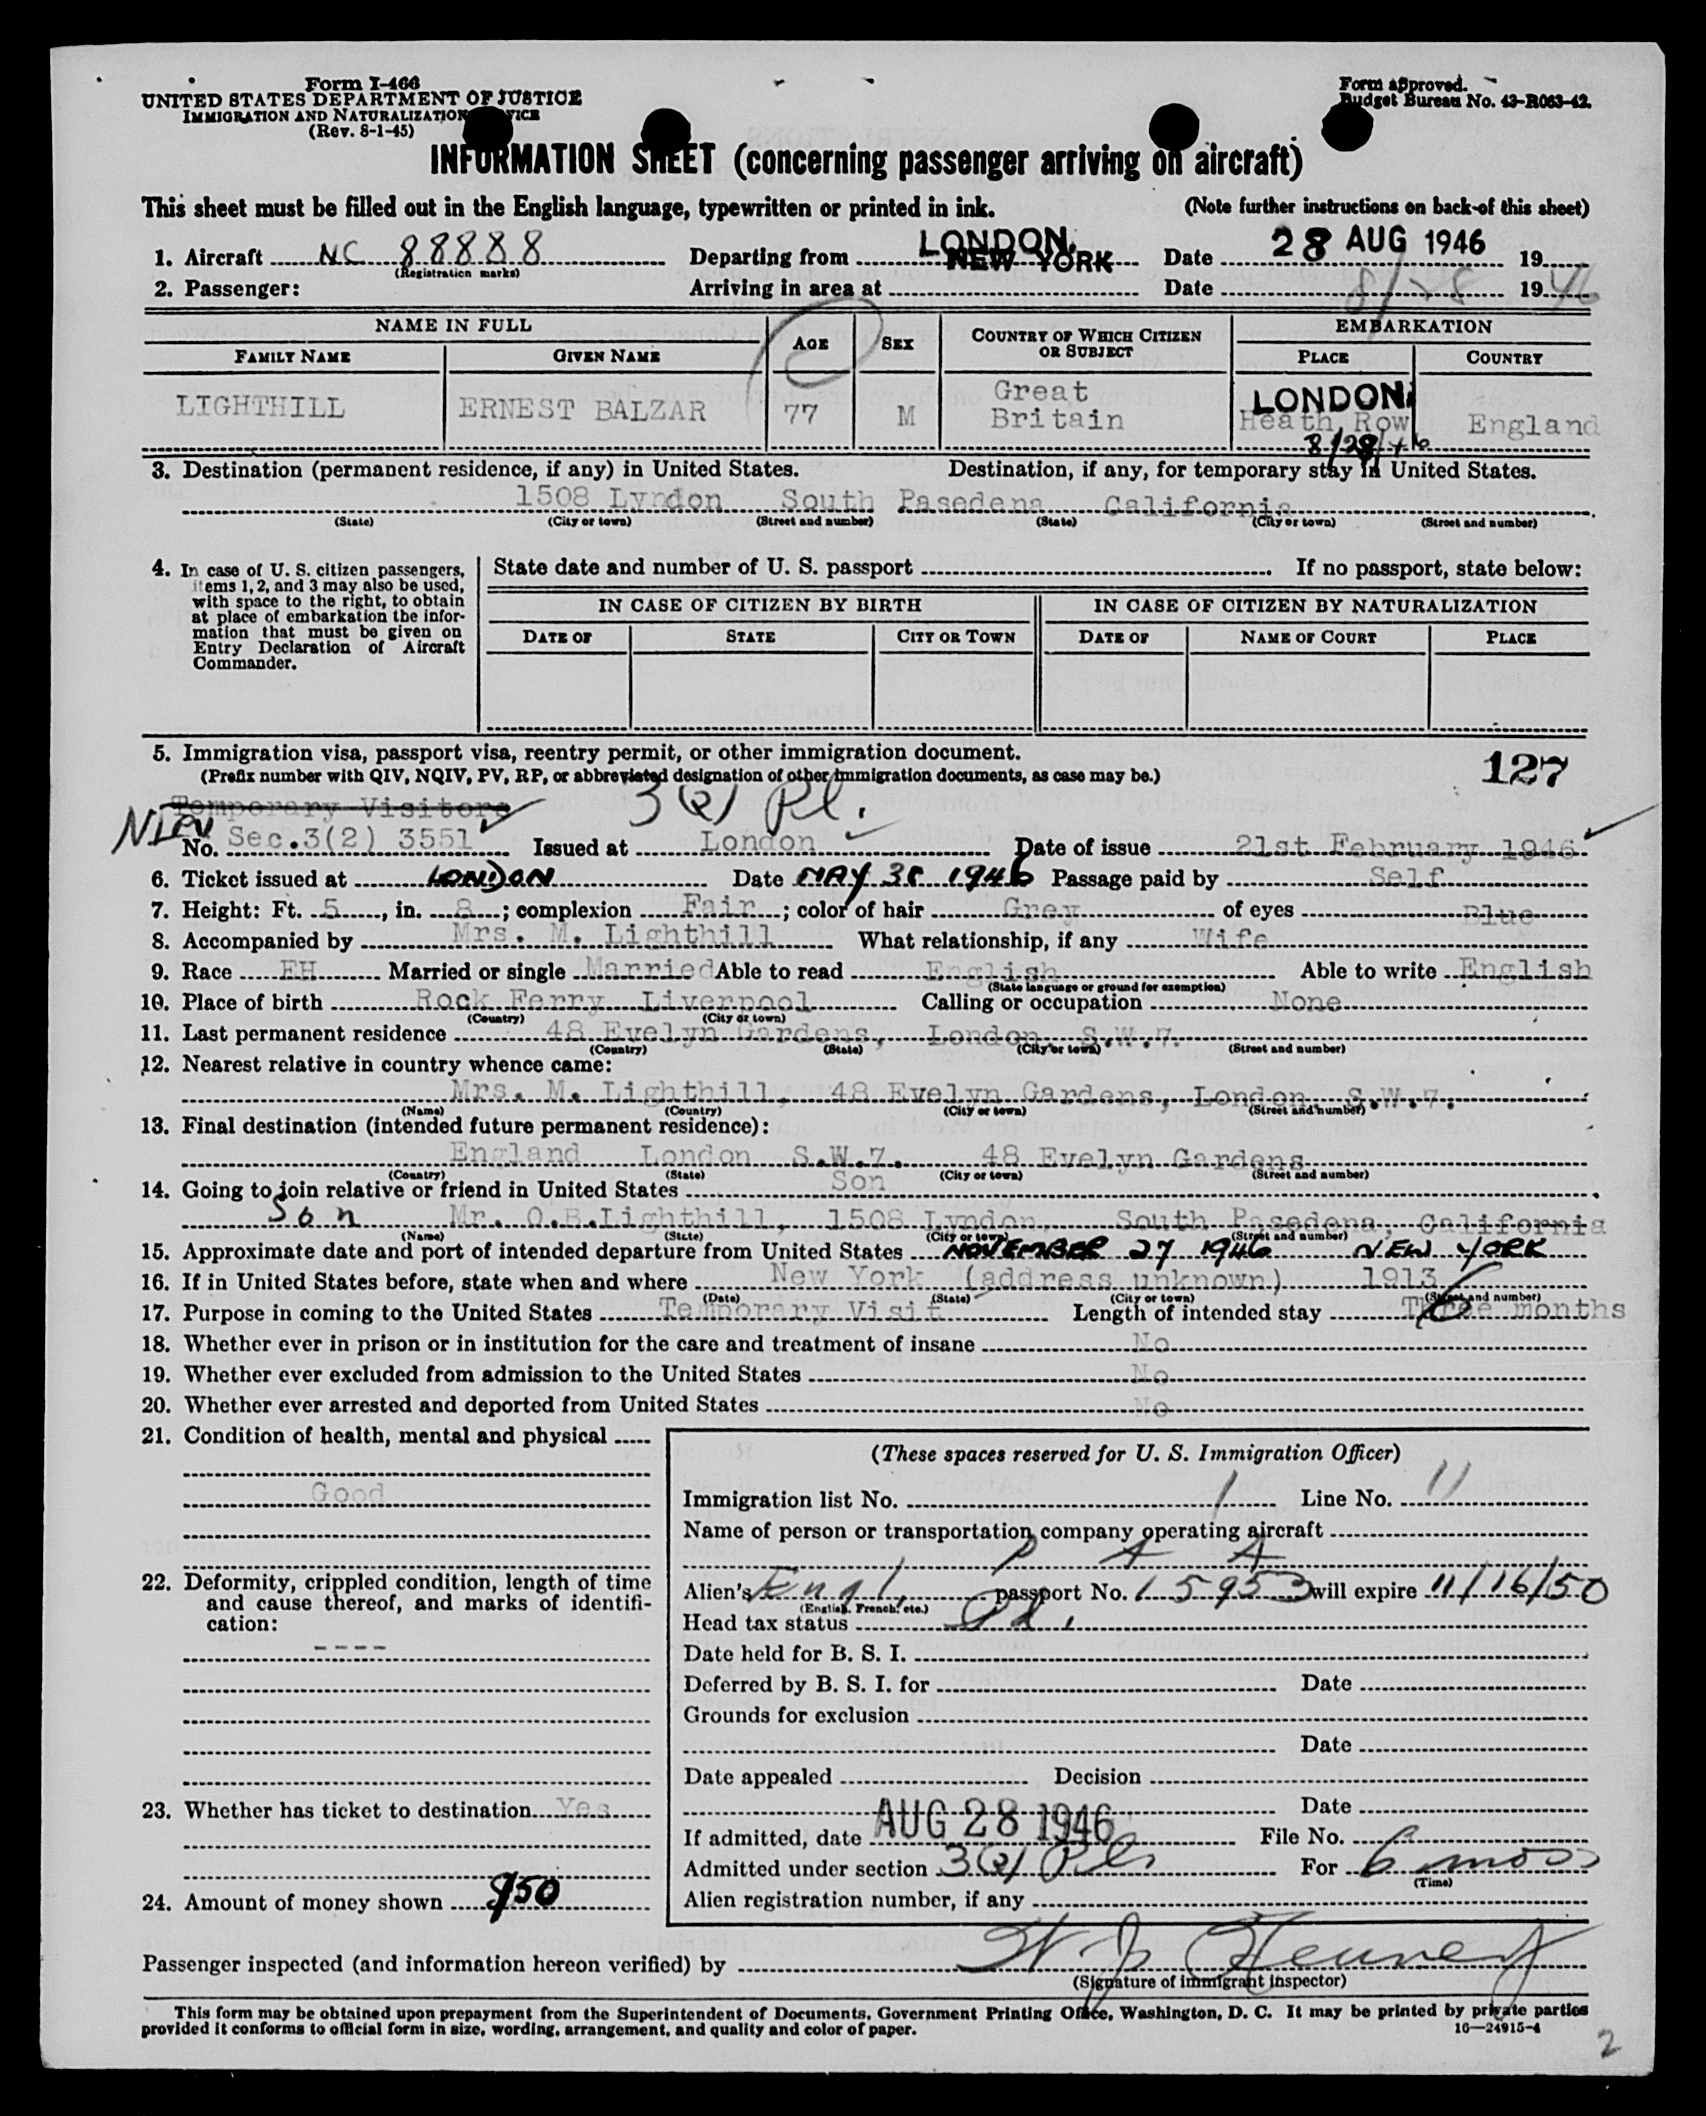 Form I-466
UNITED STATES DEPARTMENT OF JUSTICE
IMMIGRATION AND NATURALIZATION SERVICE
(Rev. 8-1-45)
Form approved.
Budget Bureau No. 43-R063-42.
INFORMATION SHEET (concerning passenger arriving on aircraft)
This sheet must be filled out in the English language, typewritten or printed in ink. (Note further instructions on back of this sheet)
1. Aircraft NC 88888 Departing from LONDON. Date 28 AUG 1946 19
(Registration marks) NEW YORK
2. Passenger: Arriving in area at Date 8/28 1946
NAME IN FULL AGE SEX COUNTRY OF WHICH CITIZEN OR SUBJECT EMBARKATION
FAMILY NAME GIVEN NAME PLACE COUNTRY
LIGHTHILL ERNEST BALZAR 77 M Great Britain LONDON Heath Row England
8/28/46
3. Destination (permanent residence, if any) in United States. Destination, if any, for temporary stay in United States.
1508 Lyndon South Pasedena California
(State) (City or town) (Street and number) (State) (City or town) (Street and number)
4. In case of U. S. citizen passengers, items 1, 2, and 3 may also be used, with space to the right, to obtain at place of embarkation the information that must be given on Entry Declaration of Aircraft Commander.
State date and number of U. S. passport If no passport, state below:
IN CASE OF CITIZEN BY BIRTH IN CASE OF CITIZEN BY NATURALIZATION
DATE OF STATE CITY OR TOWN DATE OF NAME OF COURT PLACE
5. Immigration visa, passport visa, reentry permit, or other immigration document. 127
(Prefix number with QIV, NQIV, PV, RP, or abbreviated designation of other immigration documents, as case may be.)
Temporary Visitors 3(2) Pl.
No. Sec.3(2) 3551 Issued at London Date of issue 21st February 1946
6. Ticket issued at LONDON Date MAY 31 1946 Passage paid by Self
7. Height: Ft. 5, in. 8; complexion Fair; color of hair Grey of eyes Blue
8. Accompanied by Mrs. M. Lighthill What relationship, if any Wife
9. Race EH Married or single Married Able to read English Able to write English
(State language or ground for exemption)
10. Place of birth Rock Ferry Liverpool Calling or occupation None
(Country) (City or town)
11. Last permanent residence 48 Evelyn Gardens, London S.W.7.
(Country) (State) (City or town) (Street and number)
12. Nearest relative in country whence came:
Mrs. M. Lighthill, 48 Evelyn Gardens, London, S.W.7.
(Name) (Country) (City or town) (Street and number)
13. Final destination (intended future permanent residence):
England London S.W.7. 48 Evelyn Gardens
(Country) (State) (City or town) (Street and number)
14. Going to join relative or friend in United States Son
Son Mr. O.B.Lighthill, 1508 Lyndon, South Pasedena, California
(Name) (State) (City or town) (Street and number)
15. Approximate date and port of intended departure from United States NOVEMBER 27 1946 NEW YORK
16. If in United States before, state when and where New York (address unknown) 1913
(Date) (State) (City or town) (Street and number)
17. Purpose in coming to the United States Temporary Visit Length of intended stay Three months 6
18. Whether ever in prison or in institution for the care and treatment of insane No
19. Whether ever excluded from admission to the United States No
20. Whether ever arrested and deported from United States No
21. Condition of health, mental and physical
Good
22. Deformity, crippled condition, length of time and cause thereof, and marks of identification:
----
23. Whether has ticket to destination Yes
24. Amount of money shown $50
(These spaces reserved for U. S. Immigration Officer)
Immigration list No. 1 Line No. 11
Name of person or transportation company operating aircraft
P A A
Alien's Engl. passport No. 15953 will expire 11/16/50
(English, French, etc.)
Head tax status Pd.
Date held for B. S. I.
Deferred by B. S. I. for Date
Grounds for exclusion
Date
Date appealed Decision
Date
If admitted, date AUG 28 1946 File No.
Admitted under section 3(2) For 6 mos
(Time)
Alien registration number, if any
Passenger inspected (and information hereon verified) by
(Signature of immigrant inspector)
This form may be obtained upon prepayment from the Superintendent of Documents, Government Printing Office, Washington, D. C. It may be printed by private parties
provided it conforms to official form in size, wording, arrangement, and quality and color of paper. 16—24915-4
2